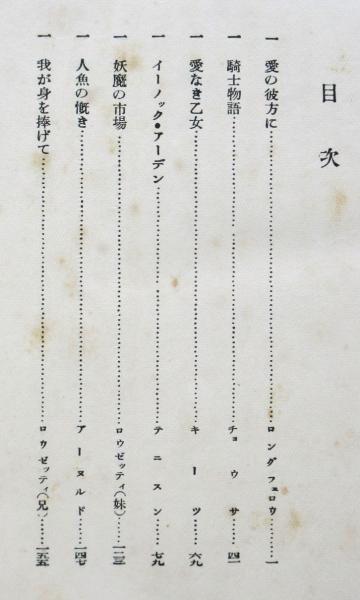 目次
一 愛の彼方に……ロングフェロウ……一
一 騎士物語……チョウサー……四一
一 愛なき乙女……キーツ……六九
一 イーノック・アーデン……テニスン……七九
一 妖魔の市場……ロウゼッティ(妹)……一二三
一 人魚の慨き……アーヌルド……一四七
一 我が身を捧げて……ロウゼッティ(兄)……一五五